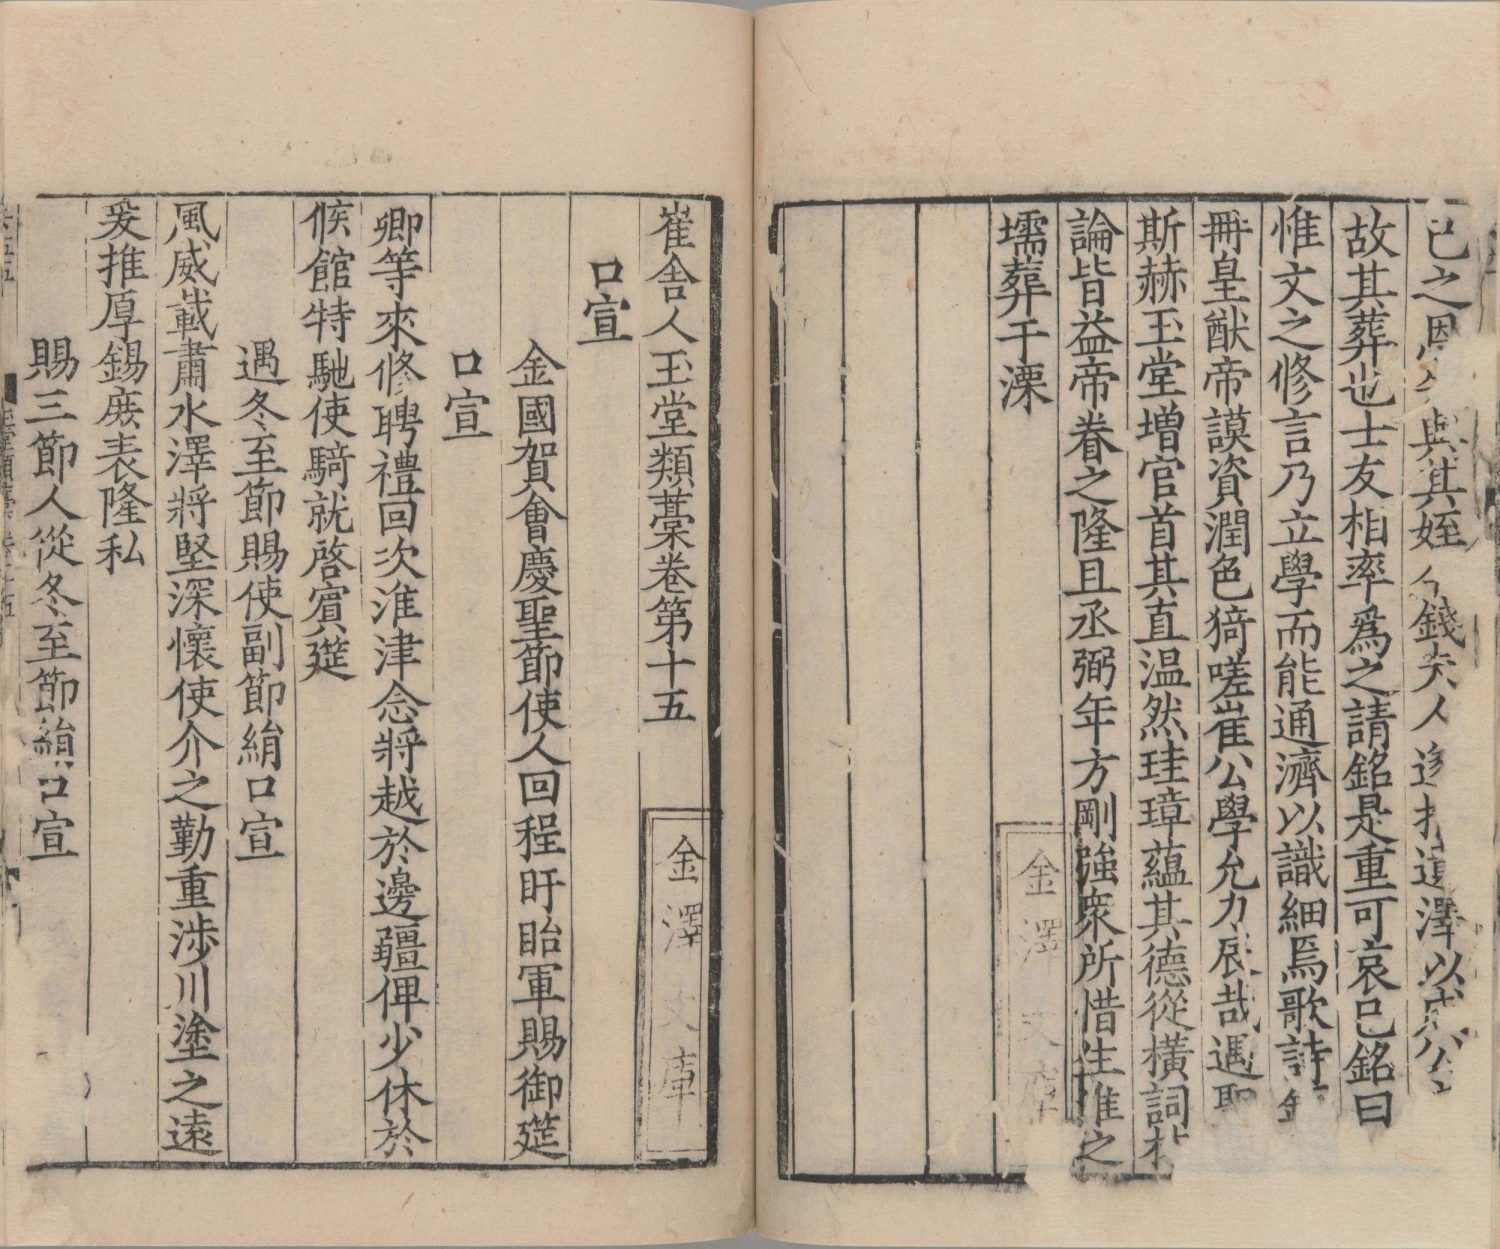 已之恩與其姪錢夫人遂道澤以
故其葬也士友相率爲之請銘是重可哀已銘曰
惟文之修言乃立學而能通濟以識細焉歌詩
冊皇猷帝謨資潤色猗嗟崔公學允力展哉遇聖
斯赫玉堂增官首其直温然珪璋蘊其德從橫詞
論皆益帝眷之隆且丞弼年方剛強衆所惜生惟之
壖葬于溧
金澤文庫
崔舍人玉堂類藁卷第十五
金澤文庫
口宣
金國賀會慶聖節使人回程盱眙軍賜御筵
口宣
卿等來修聘禮回次淮津念將越於邊疆俾少休於
候館特馳使騎就啓賓筵
遇冬至節賜使副節絹口宣
風威載肅水澤將堅深懷使介之勤重涉川塗之遠
爰推厚錫庶表隆私
賜三節人從冬至節絹口宣